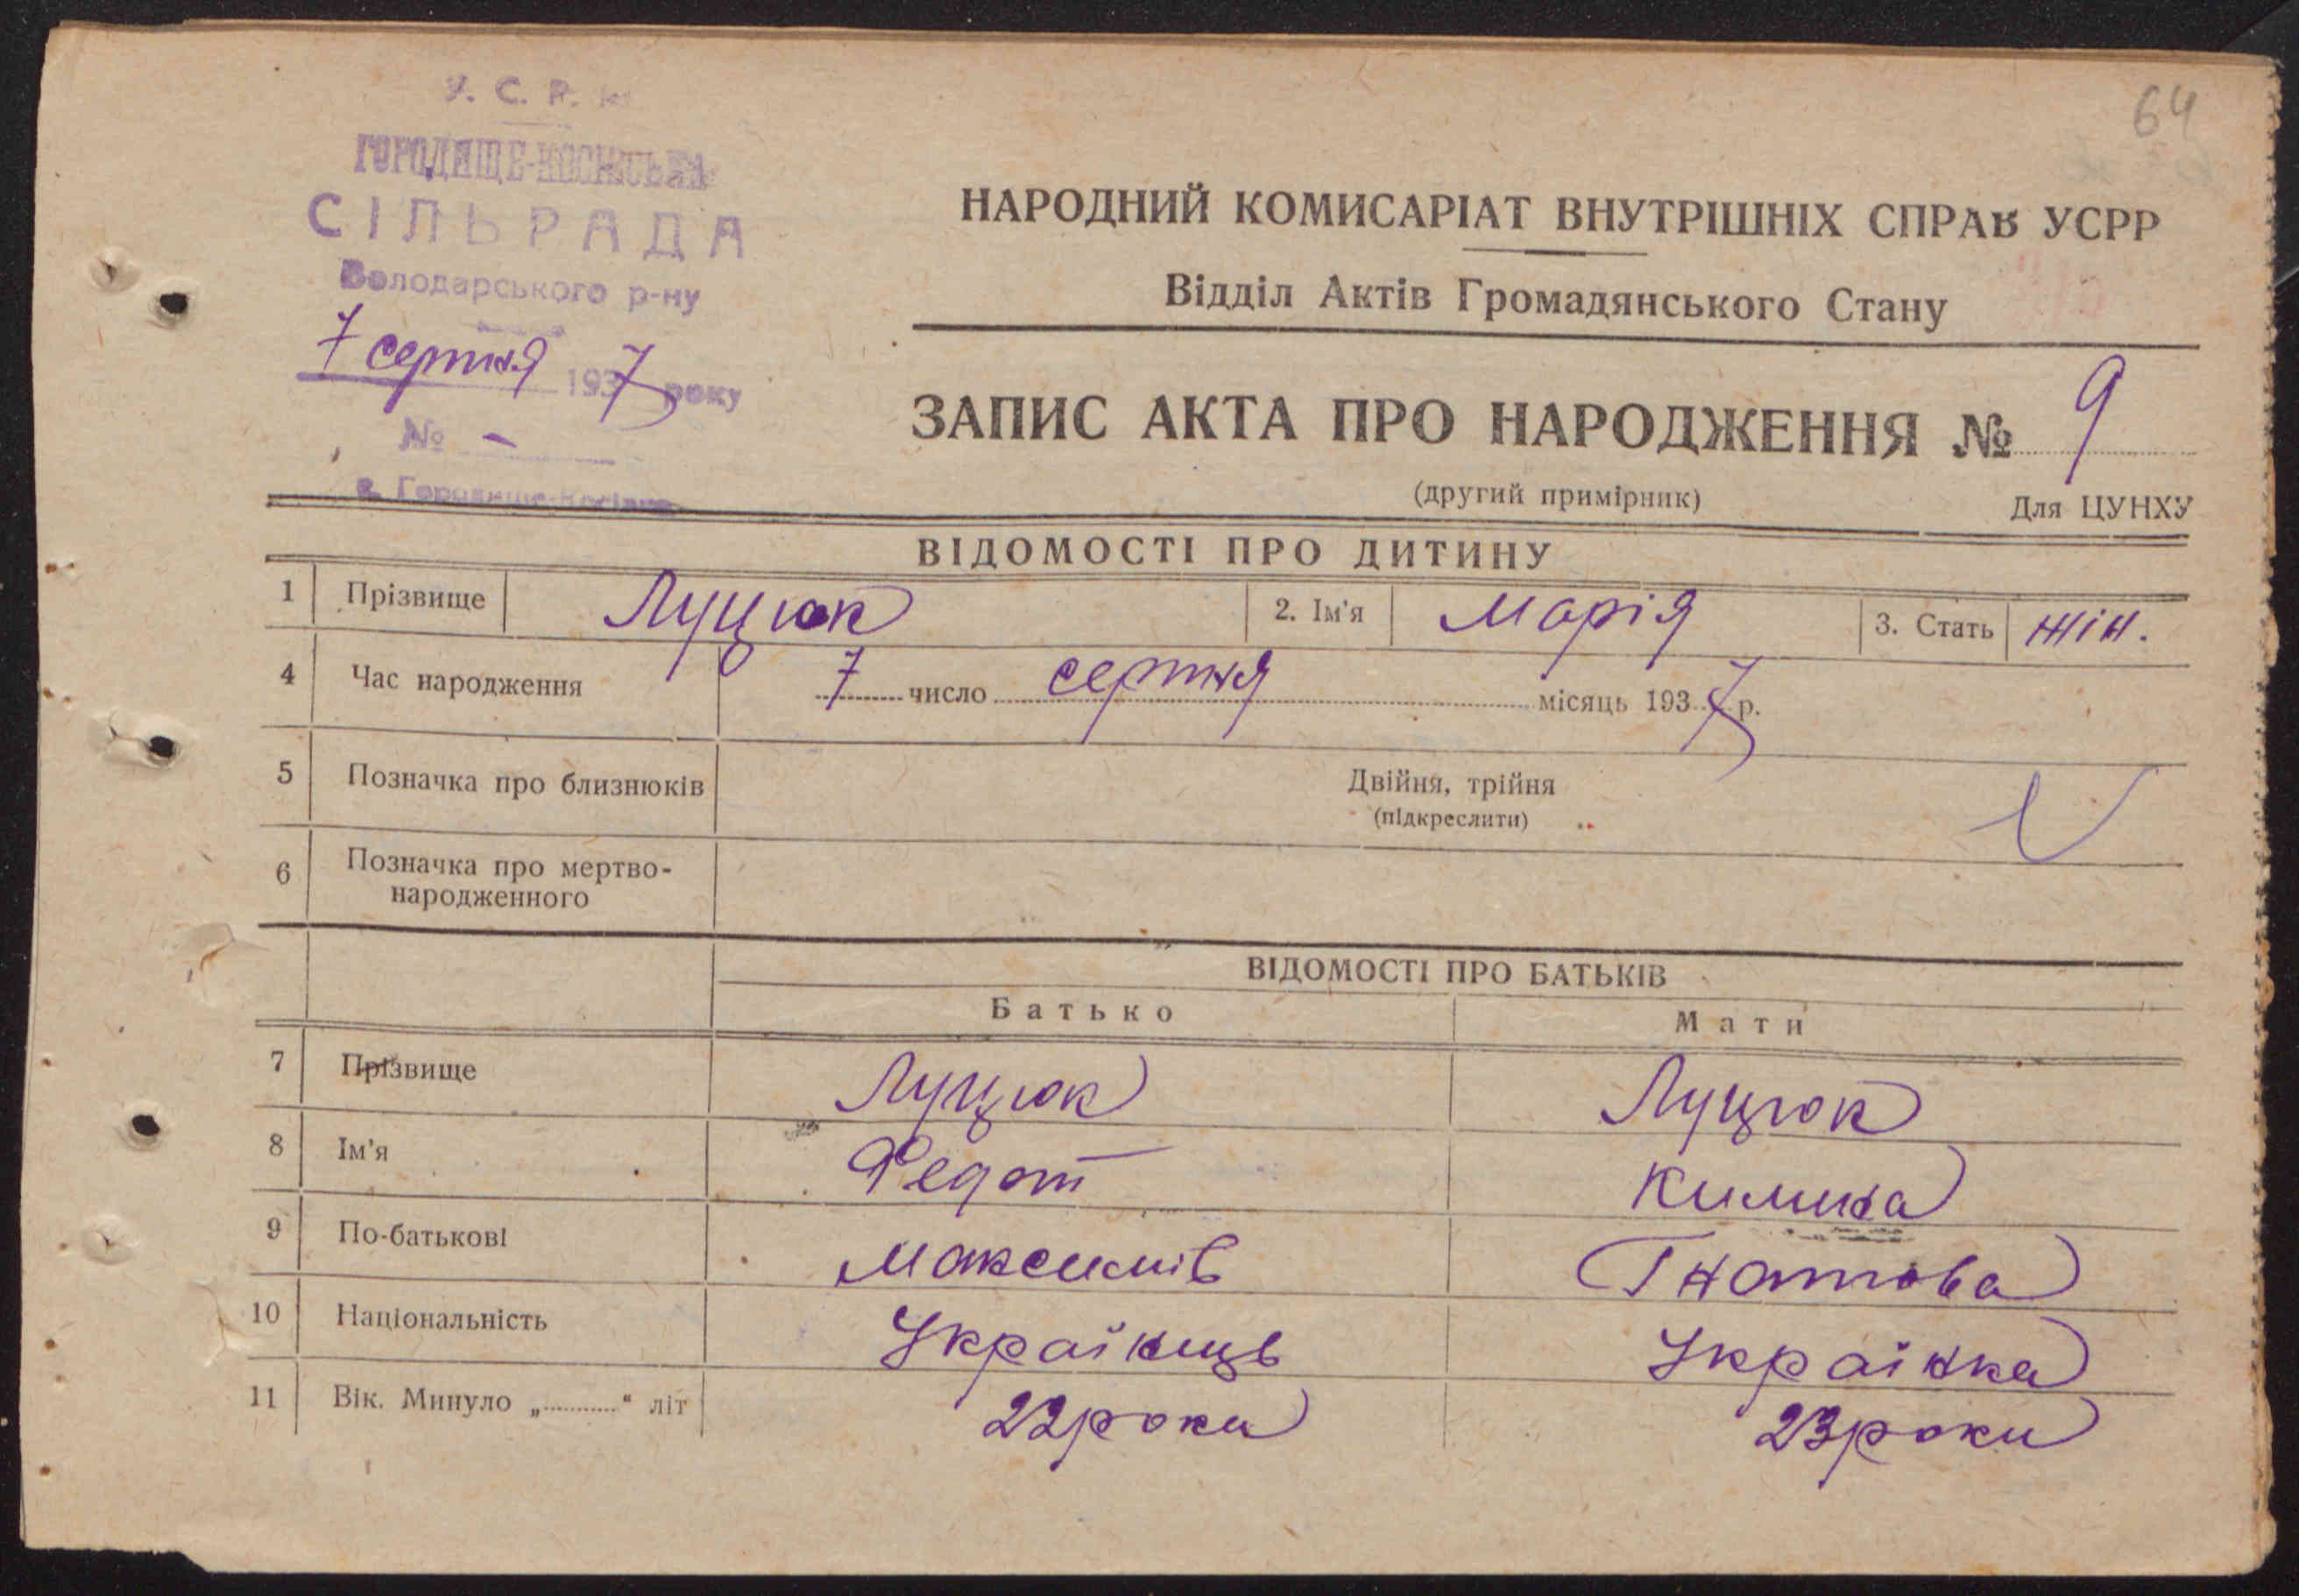 64
У. С. Р. Р.
ГОРОДИЩЕ-КОСІВСЬКА
СІЛЬРАДА
Володарського р-ну
7 серпня 1937 року
№ -
с. Городище-Косівка
НАРОДНИЙ КОМИСАРІАТ ВНУТРІШНІХ СПРАВ УСРР
Відділ Актів Громадянського Стану
ЗАПИС АКТА ПРО НАРОДЖЕННЯ № 9
(другий примірник)
Для ЦУНХУ
ВІДОМОСТІ ПРО ДИТИНУ
1 Прізвище Луцюк 2. Ім'я Марія 3. Стать жін.
4 Час народження 7 число серпня місяць 1937 р.
5 Позначка про близнюків Двійня, трійня
(підкреслити)
6 Позначка про мертво-
народженного
ВІДОМОСТІ ПРО БАТЬКІВ
Батько Мати
7 Прізвище Луцюк Луцюк
8 Ім'я Федот Килина
9 По-батькові Максимів Гнатова
10 Національність Українець Українка
11 Вік. Минуло „............“ літ 22 роки 23 роки